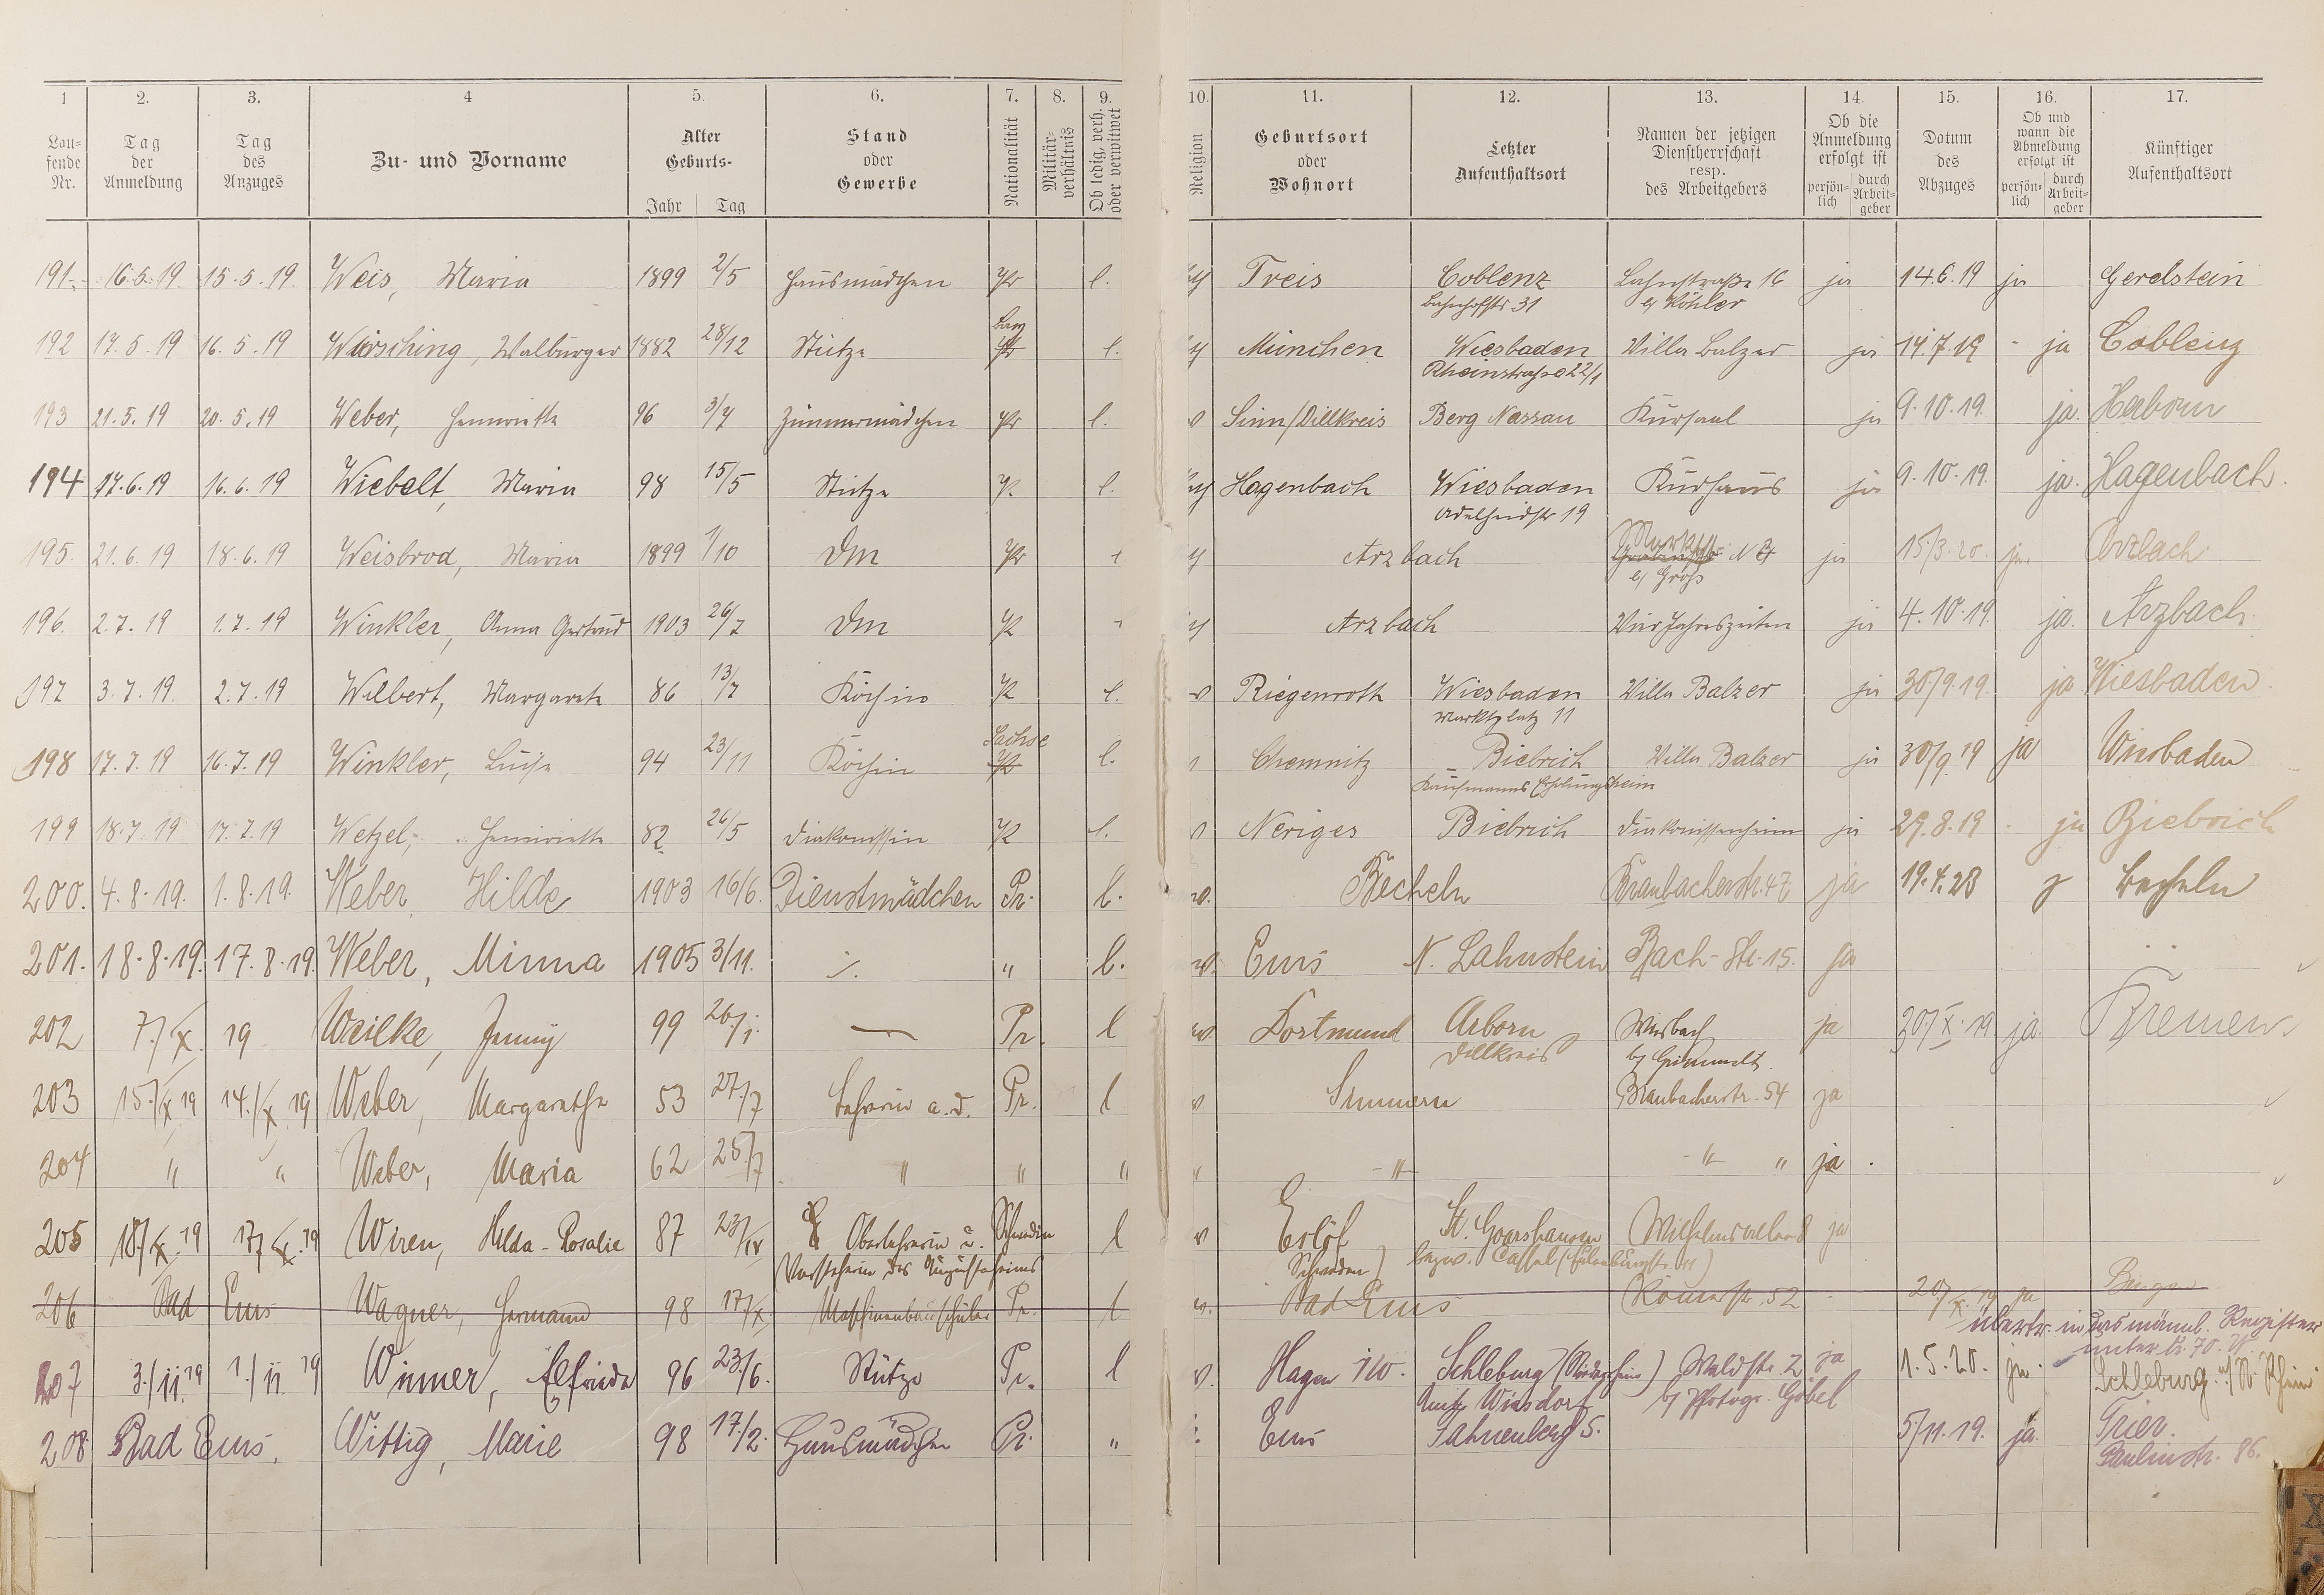 1 2. 3. 4 5. 6. 7. 8. 9. 10. 11. 12. 13. 14. 15. 16. 17.
Lau-
fende
Nr.
Tag
der
Anmeldung
Tag
des
Anzuges
Zu- und Vorname
Alter
Geburts-
Jahr Tag
Stand
oder
Gewerbe
Nationalität
Militär-
verhältnis
Ob ledig, verh.
oder verwitwet
Religion
Geburtsort
oder
Wohnort
Letzter
Aufenthaltsort
Namen der jetzigen
Dienstherrschaft
resp.
des Arbeitgebers
Ob die
Anmeldung
erfolgt ist
persön-
lich
durch
Arbeit-
geber
Datum
des
Abzuges
Ob und
wann die
Abmeldung
erfolgt ist
persön-
lich
durch
Arbeit-
geber
Künftiger
Aufenthaltsort
191. 16.5.19. 15.5.19. Weis, Maria 1899 2/5 Hausmädchen Pr l. Treis Coblenz Lahnstraße 16 ja 14.6.19 ja Gerelstein
Bahnhofstr 31 b/ Köhler
Bay
192 17.5.19 16.5.19 Wirsching, Walburger 1882 28/12 Stütze Pr l. München Wiesbaden Villa Balzer ja 14.7.19 - ja Coblenz
Rheinstraße 22/1
193 21.5.19 20.5.19 Weber, Henriette 96 3/7 Zimmermädchen Pr l. Sinn/Dillkreis Berg Nassau Kursaal ja 9.10.19. ja. Herborn
194 17.6.19 16.6.19 Wiebelt, Maria 98 15/5 Stütze P. l. Hagenbach Wiesbaden Kurhaus ja 9.10.19. ja. Hagenbach.
Adelheidstr 19
195. 21.6.19 18.6.19 Weisbrod, Maria 1899 1/10 Dm Pr Arzbach ja 15/3.20. ja. Arzbach
b/ Groß
196. 2.7.19 1.7.19 Winkler, Anna Gertrud 1903 26/7 Dm Pr Arzbach Vier Jahreszeiten ja 4.10.19. ja. Arzbach.
197 3.7.19. 2.7.19 Wilbert, Margarete 86 13/7 Köchin Pr l. Riegenroth Wiesbaden Villa Balzer ja 30/9.19. ja Wiesbaden.
Marktplatz 11
Sachse
198 17.7.19 16.7.19 Winkler, Luise 94 23/11 Köchin Pr l. Chemnitz Biebrich Villa Balzer ja 30/9.19 ja Wiesbaden
Kaufmanns Erholungsheim
199 18.7.19 17.7.19 Wetzel, Henriette 82 26/5 Diakonissin Pr l. Neriges Biebrich Diakonissenheim ja 29.8.19 - ja Biebrich
200. 4.8.19. 1.8.19. Weber, Hilde 1903 16/6. Dienstmädchen Pr. l. Becheln Braubacherstr. 47 ja 19.4.23 Becheln
201. 18.8.19. 17.8.19. Weber, Minna 1905 3/11. ./. " l. Ems N. Lahnstein Bach-Str. 15. ja
202 7./X. 19 Weilke, Jenny 99 26./1. — Pr. l Dortmund Arborn ja 30/X.19 ja Bremen
Dillkreis
203 15./X 19 14./X 19 Weber, Margarethe 53 27./7 Lehrerin a.D. Pr. l Simmern Braubacherstr. 54 ja
204 " " Weber, Maria 62 25./7 " " " " -"- -"- " ja.
205 18./X.19 17/X.19 Wiren, Hilda-Rosalie 87 23/IV Oberlehrerin u. Schwedin l Eslöf St. Goarshausen ja
Vorsteherin des Augustaheims Schweden) bezw. Cassel
206 Bad Ems Wagner, Hermann 98 17/X Maschinenbauschüler Pr. l Bad Ems Römerstr. 52 20/X.19 ja Bingen
übertr. in das männl. Register
unter
207 3./11.19 1./11 19 Winner, Elfriede 96 23./6. Stütze Pr. l Hagen i/W. Schleburg (Niederrhein) Waldstr. 2 ja 1.5.20. ja. Schleburg
Wiesdorf b/ Photogr. Göbel
208. Bad Ems. Wittig, Marie 98 17./2. Hausmädchen Pr. " Ems Fahnenberg 5. 5/11.19. ja. Trier.
Paulinstr. 86.